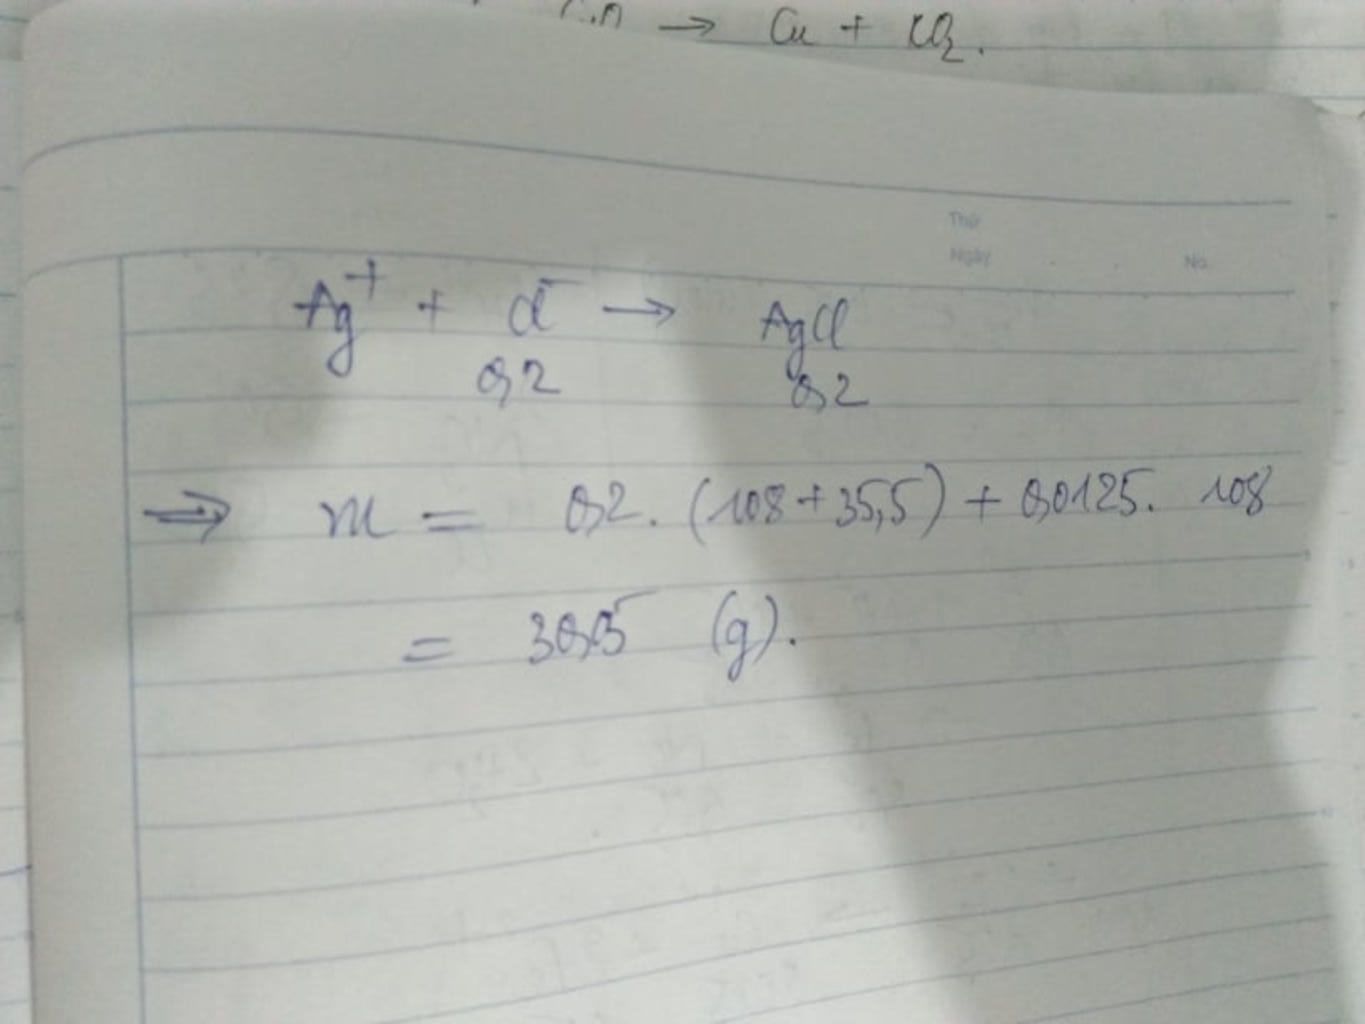 → Cu + CO2.
Thứ
Ngày No.
Ag⁺ + Cl⁻ → AgCl
0,2 0,2
⇒ m = 0,2. (108 + 35,5) + 0,0125. 108
= 30,05 (g).